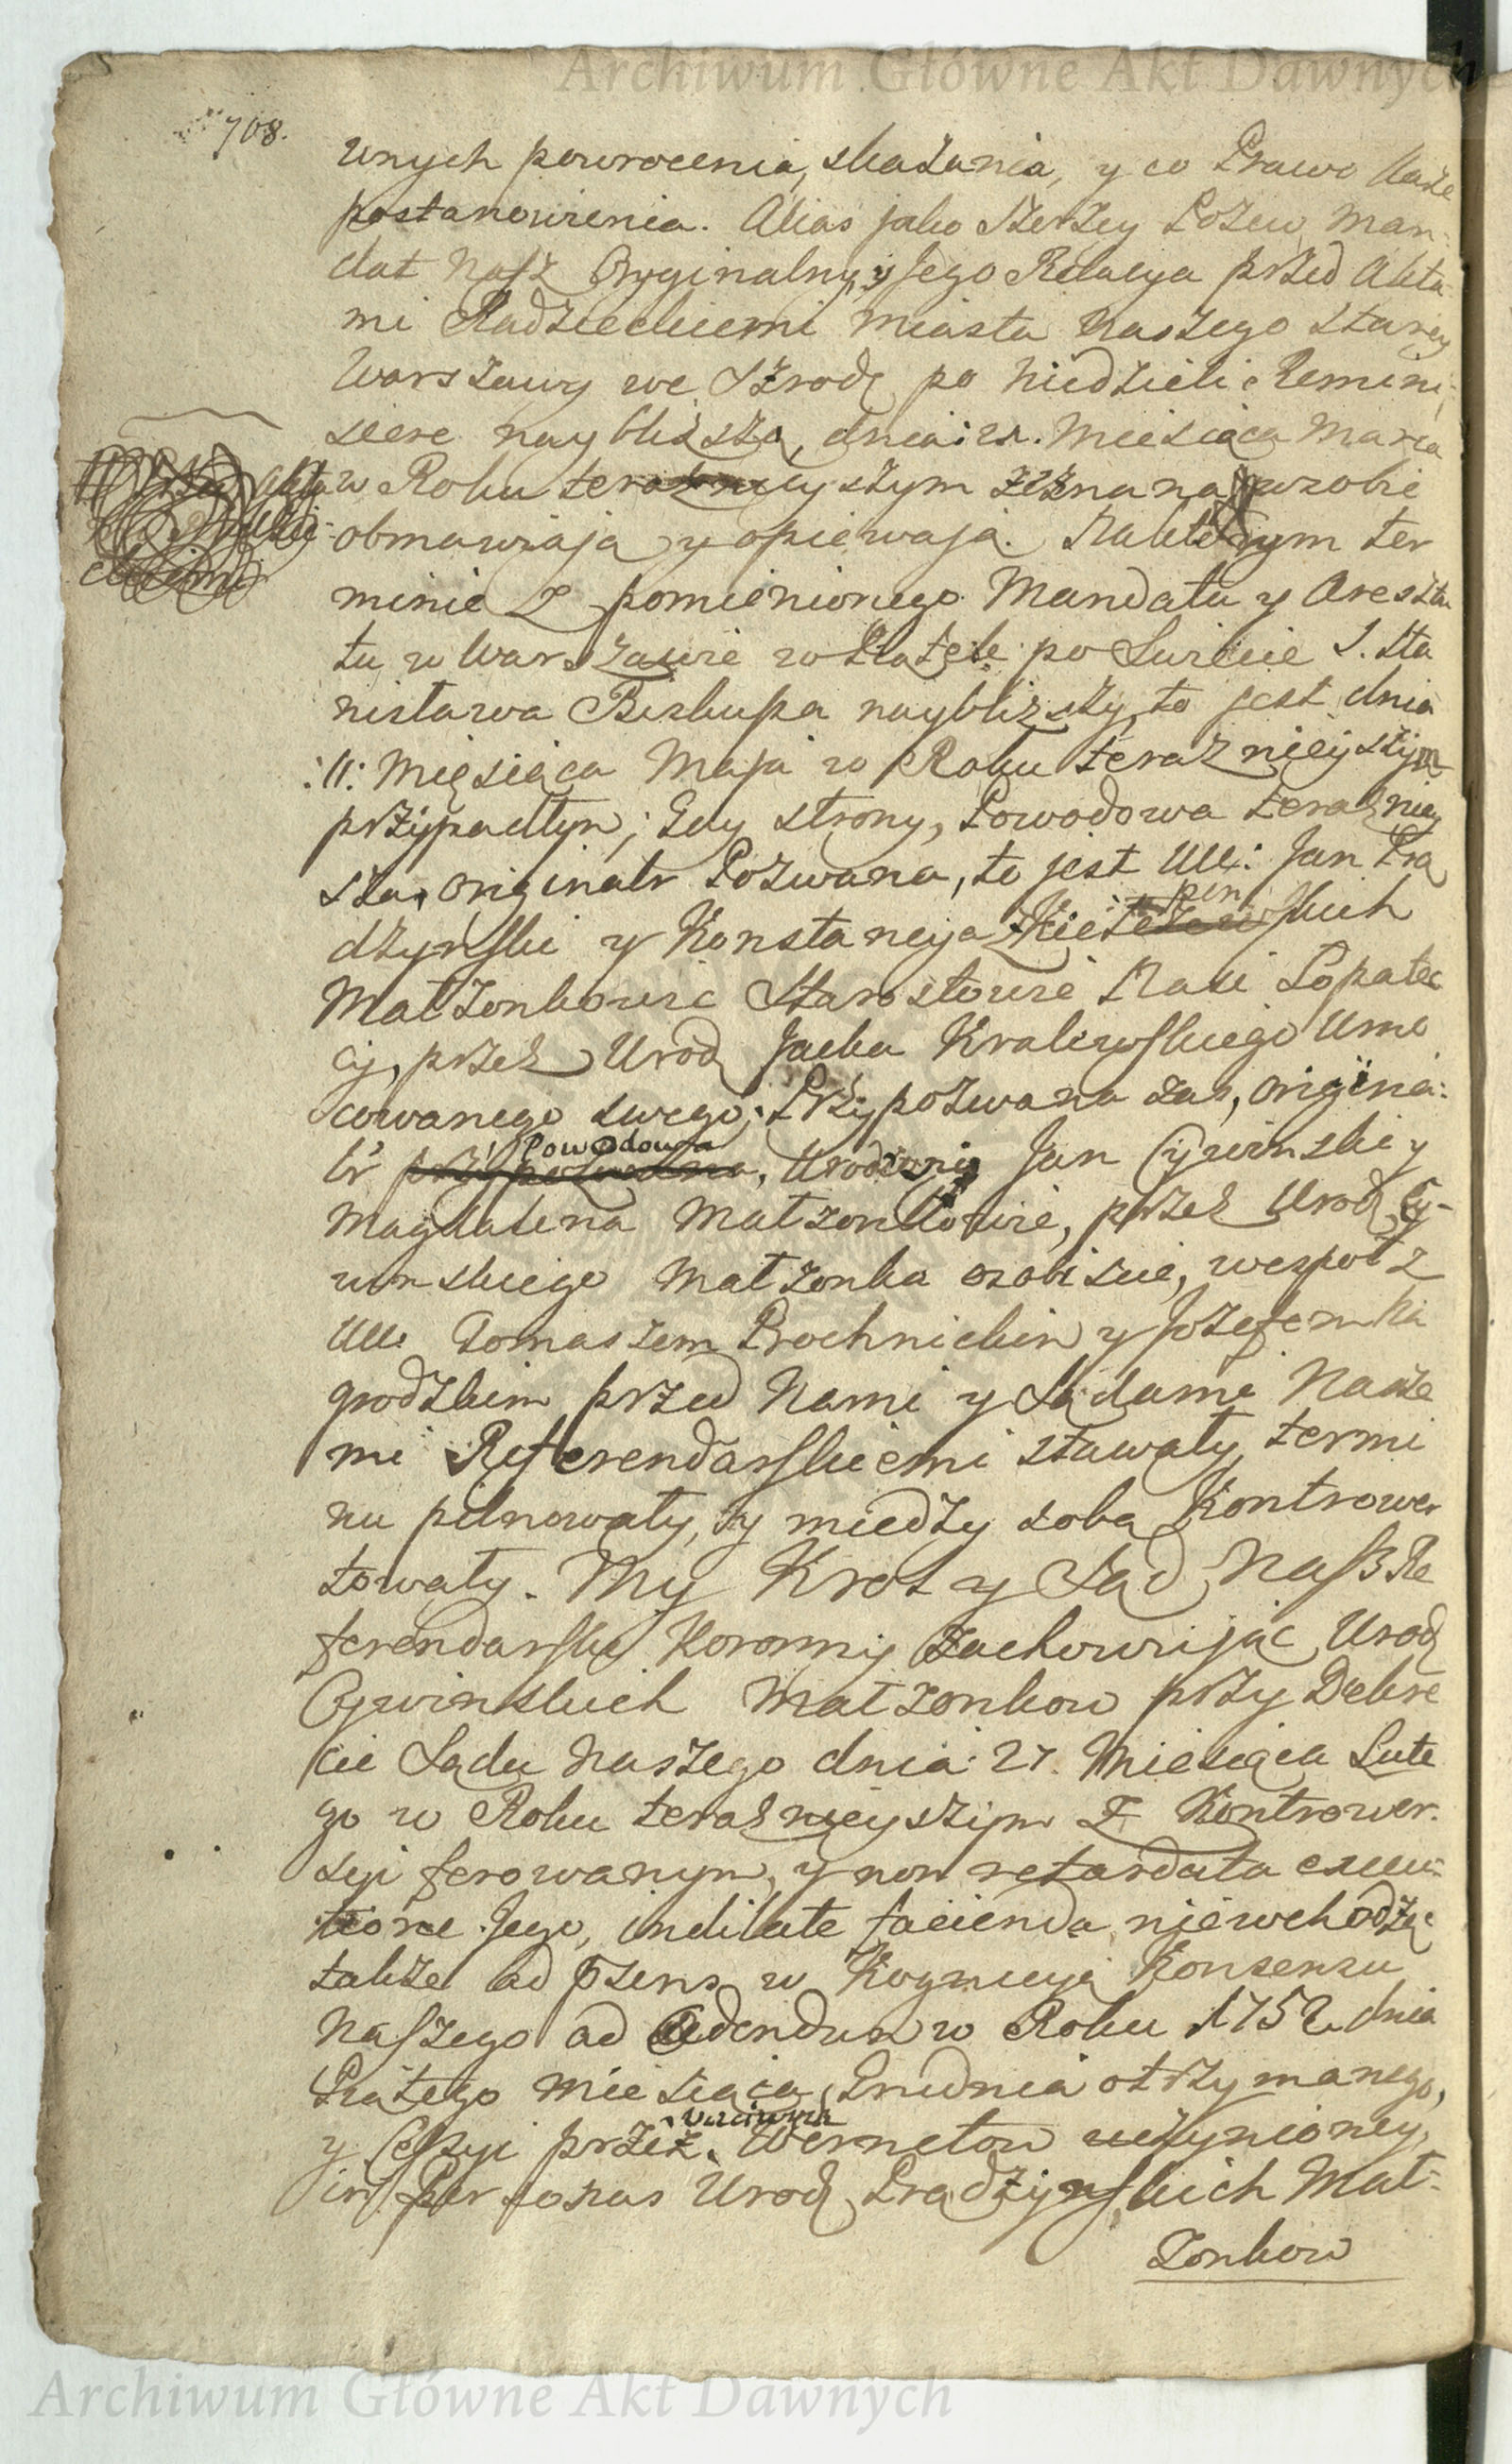 Archiwum Główne Akt Dawnych
708.
wnych powrocenia, skazania, y co Prawo każe
postanowienia. Alias jako szerzey Pozew Man-
dat Nasz Oryginalny, y Jego Relacya przed Akta
mi Radzieckiemi Miasta Naszego Starey
Warszawy we Szrodę po Niedzieli Remini-
scere naybliższą, dnia: 21. Miesiąca Marca
w Roku teraznieyszym zeznana, w sobie
obmawiają y opiewaią. Na którym ter
minie z pomienionego Mandatu y Areszta
tu w Warszawie w Piątek po Swięcie S. Sta
nisława Biskupa naybliższy, to jest dnia
:11: Miesiąca Maja w Roku teraznieyszym
przypadłym; Gdy strony, Powodowa teraźniey
sza, originalr Pozwana, to jest Ull: Jan Prą
dzynski y Konstancya z Kiełpinskich
Małżonkowie Starostowie Łopatec
cy, przez Urodz Jacka Kralewskiego Umo
cowanego swego; Przypozwana zas, origina:
lr Powodowa, Urodzeni Jan Cywinski y
Magdalena Małżonkowie, przez Urodz Cy-
winskiego Małżonka osobiscie, wespoł z
Ull: Tomaszem Prochnickim y Jozefem Na
grodzkim przed Nami y Sądami Nasze
mi Referendarskiemi stawały, termi
nu pilnowały, y między sobą Kontrower
towały. My Krol y Sąd Nasz Re
ferendarski Koronny zachowując Urodz
Cywinskich Małżonkow przy Dekre
cie Sądu Naszego dnia: 27. Miesiąca Lute
go w Roku teraznieyszym z Kontrower-
syi ferowanym, y non retardata execu-
tione Jego, indilate facienda, niewchodząc
także ad praesens w Kognicyą Konsensu
Naszego ad cedendum w Roku 1752 dnia
Piątego Miesiąca Grudnia otrzymanego,
y Cessyi przez Uczciwych Wernetow uczynioney,
in Personas Urodz Prądzynskich Mał-
żonkow
Archiwum Główne Akt Dawnych